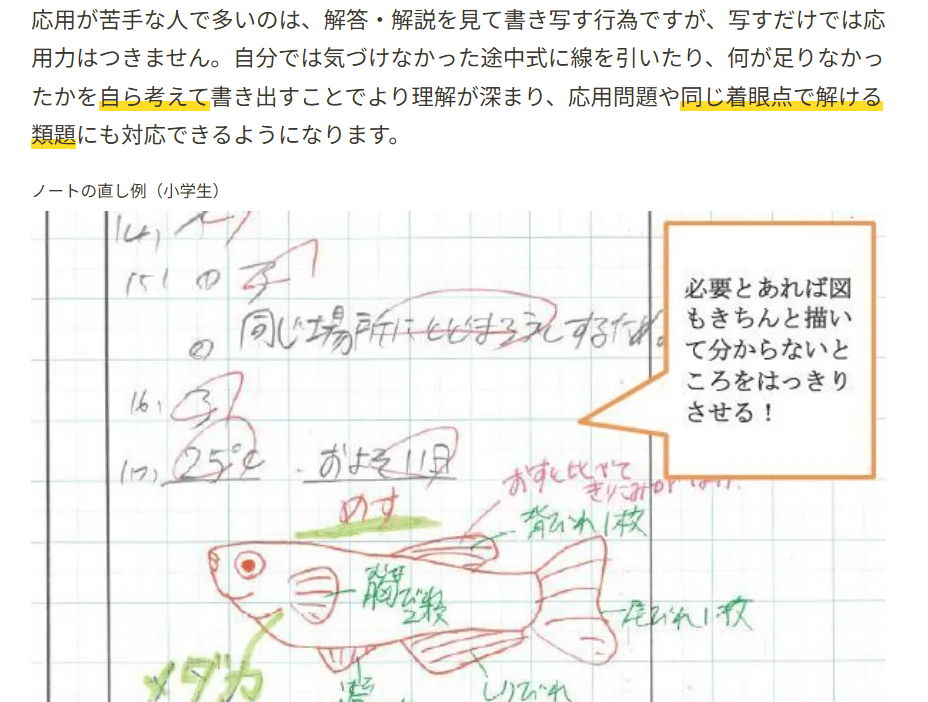 応用が苦手な人で多いのは、解答・解説を見て書き写す行為ですが、写すだけでは応
用力はつきません。自分では気づけなかった途中式に線を引いたり、何が足りなかっ
たかを自ら考えて書き出すことでより理解が深まり、応用問題や同じ着眼点で解ける
類題にも対応できるようになります。
ノートの直し例（小学生）
必要とあれば図
もきちんと描い
て分からないと
ころをはっきり
させる！
(4)
(5) ① 子
② 同じ場所にとどまろうとするため。
(6)
(7) 25℃ およそ11日
おすと比べて
めす
背びれ1枚
胸びれ2枚
尾びれ1枚
メダカ
しりびれ